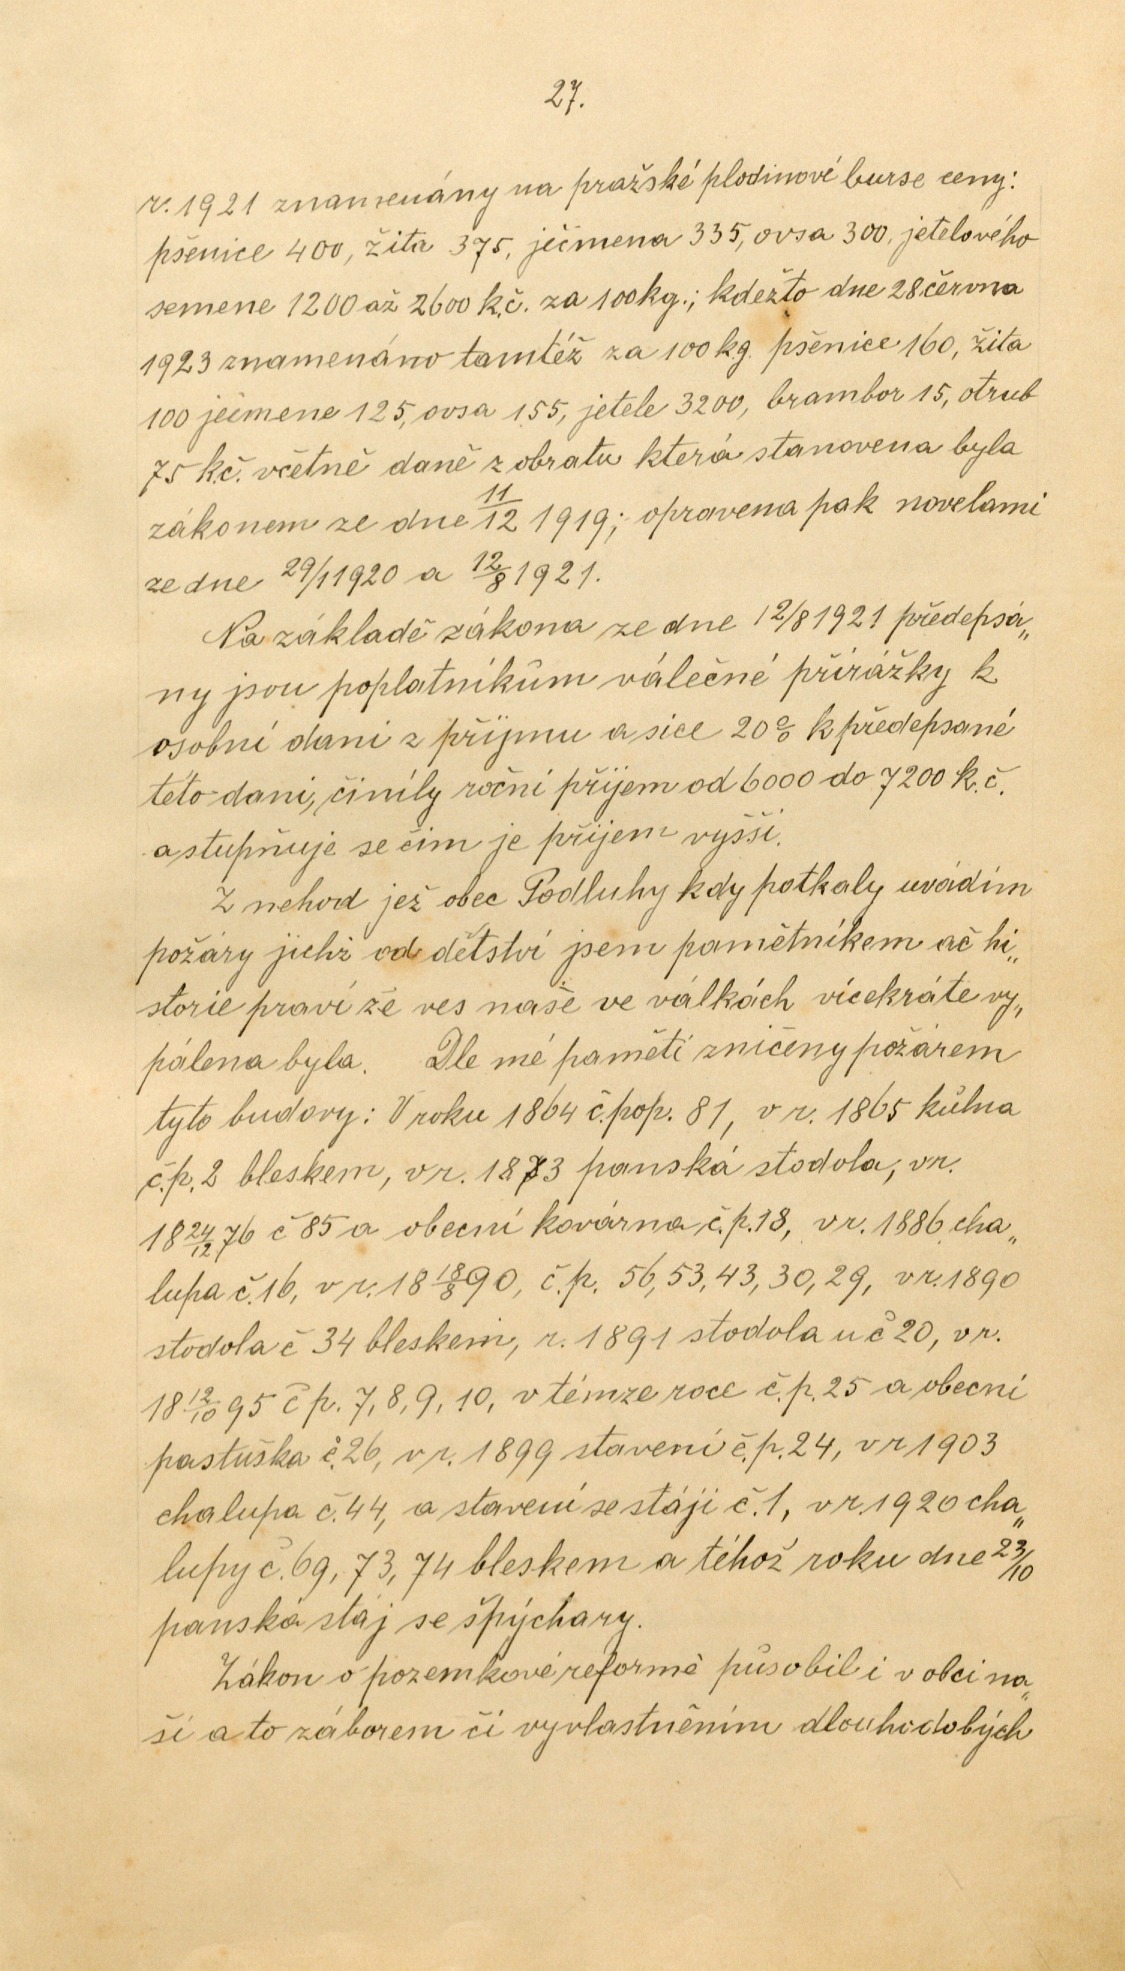 27.
r. 1921 znamenány na pražské plodinové burse ceny:
pšenice 400, žita 375, ječmena 335, ovsa 300, jetelového
semene 1200 až 2600 k.č. za 100 kg.; kdežto dne 28 června
1923 znamenáno tamtéž za 100 kg. pšenice 160, žita
100 ječmene 125, ovsa 155, jetele 3200, brambor 15, otrub
75 k.č. včetně daně z obratu která stanovena byla
zákonem ze dne 11/12 1919; opravena pak novelami
ze dne 29/1 1920 a 12/8 1921.
Na základě zákona ze dne 12/8 1921 předepsá„
ny jsou poplatníkům válečné přirážky k
osobní dani z příjmu a sice 20% k předepsané
této dani, činíly roční příjem od 6000 do 7200 k.č.
a stupňuje se čim je příjem vyšší.
Z nehod jež obec Podluhy kdy potkaly uvádím
požáry jichž od dětství jsem pamětníkem ač hi„
storie praví že ves naše ve válkách vícekráte vy„
pálena byla. Dle mé paměti zničeny požárem
tyto budovy: V roku 1864 č.pop. 81, v r. 1865 kůlna
č.p. 2 bleskem, v r. 1873 panská stodola, v r.
18 24/12 76 č 85 a obecní kovárna č.p. 18, v r. 1886 cha„
lupa č. 16, v r. 18 18/8 90, č.p. 56, 53, 43, 30, 29, v r. 1890
stodola č 34 bleskem, r. 1891 stodola u č 20, v r.
18 12/10 95 č p. 7, 8, 9, 10, v témze roce č.p. 25 a obecní
pastuška č. 26, v r. 1899 stavení č.p. 24, v r 1903
chalupa č. 44, a stavení se stáji č. 1, v r. 1920 cha„
lupy č. 69, 73, 74 bleskem a téhož roku dne 23/10
panská stáj se špýchary.
Zákon o pozemkové reformě působil i v obci na„
ší a to záborem či vyvlastněním dlouhodobých